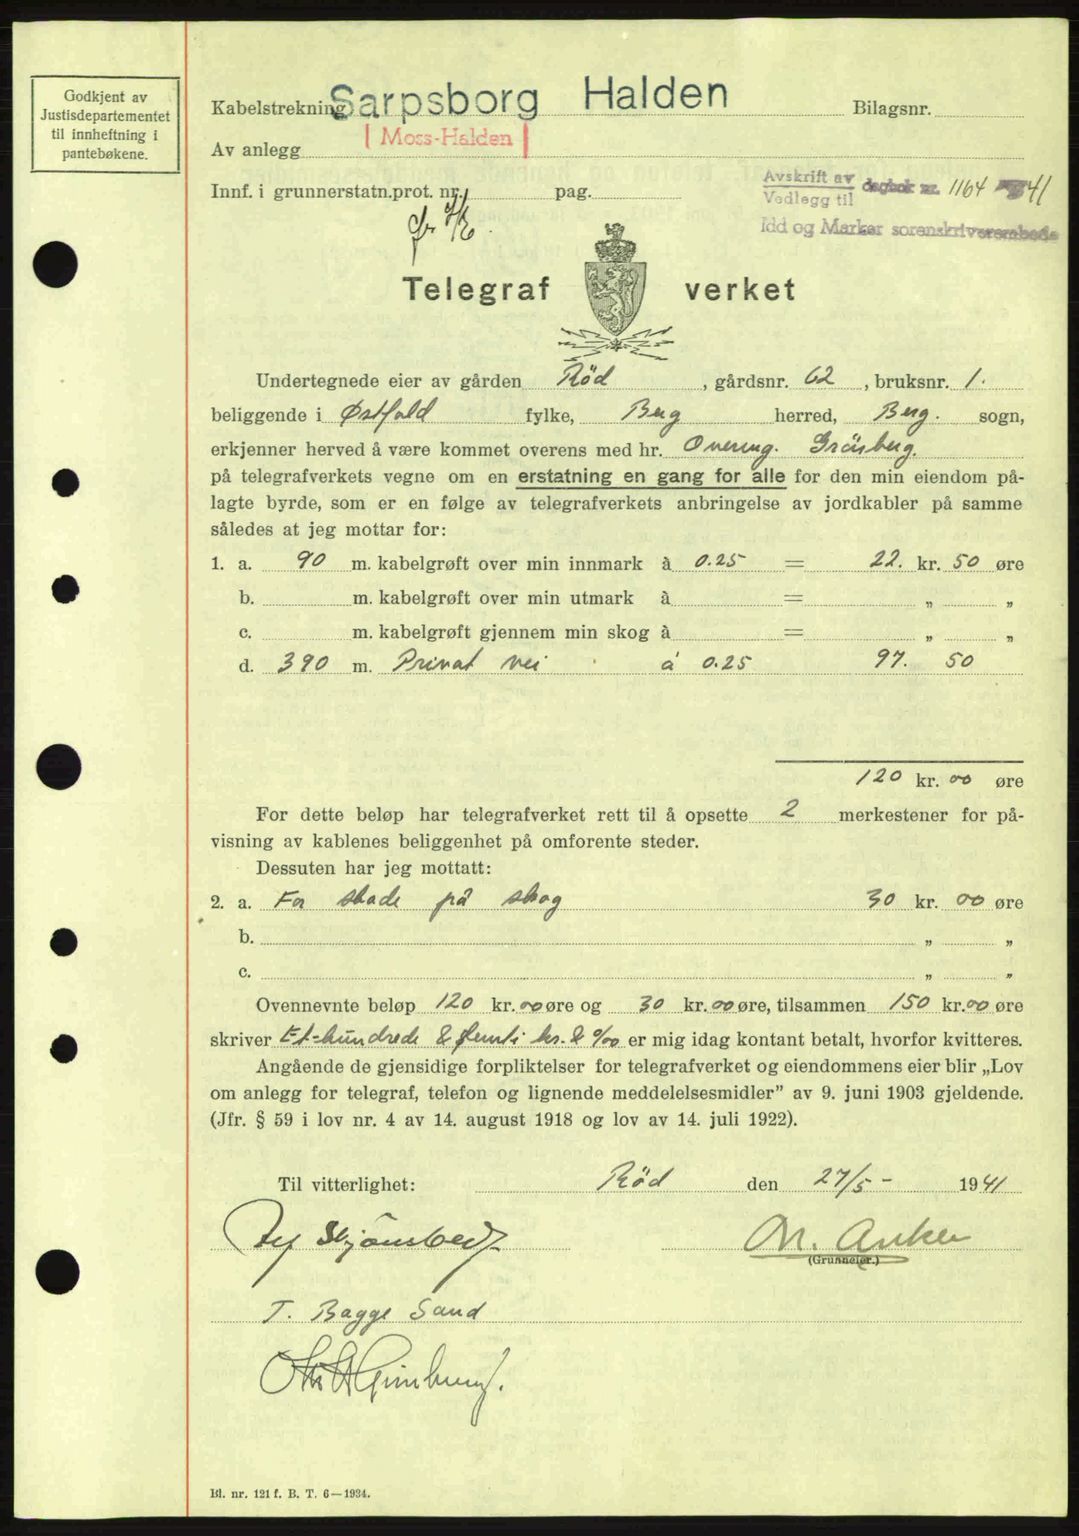 Godkjent av
Justisdepartementet
til innheftning i
pantebøkene.
Kabelstrekning Sarpsborg Halden Bilagsnr.
Moss-Halden
Av anlegg
Innf. i grunnerstatn.prot. nr. pag.
Avskrift av dagbok nr. 1164 41
Vedlegg til
Idd og Marker sorenskriverembede
Telegrafverket
Undertegnede eier av gården Rød, gårdsnr. 62, bruksnr. 1.
beliggende i Østfold fylke, Berg herred, Berg. sogn,
erkjenner herved å være kommet overens med hr. Overing. Grönberg.
på telegrafverkets vegne om en erstatning en gang for alle for den min eiendom på-
lagte byrde, som er en følge av telegrafverkets anbringelse av jordkabler på samme
således at jeg mottar for:
1. a. 90 m. kabelgrøft over min innmark à 0.25 = 22. kr. 50 øre
b. m. kabelgrøft over min utmark à = „ „
c. m. kabelgrøft gjennem min skog à = „ „
d. 390 m. Privat vei à 0.25 97. 50
120 kr. 00 øre
For dette beløp har telegrafverket rett til å opsette 2 merkestener for på-
visning av kablenes beliggenhet på omforente steder.
Dessuten har jeg mottatt:
2. a. For skade på skog 30 kr. 00 øre
b. „ „
c. „ „
Ovennevnte beløp 120 kr. 00 øre og 30 kr. 00 øre, tilsammen 150 kr. 00 øre
skriver Et-hundrede & femti kr. & 0/00 er mig idag kontant betalt, hvorfor kvitteres.
Angående de gjensidige forpliktelser for telegrafverket og eiendommens eier blir „Lov
om anlegg for telegraf, telefon og lignende meddelelsesmidler” av 9. juni 1903 gjeldende.
(Jfr. § 59 i lov nr. 4 av 14. august 1918 og lov av 14. juli 1922).
Til vitterlighet: Rød den 27/5 - 1941
Skjönsbed M. Anker
(Grunneier.)
T. Bagge Sand
Bl. nr. 121 f. B. T. 6—1934.